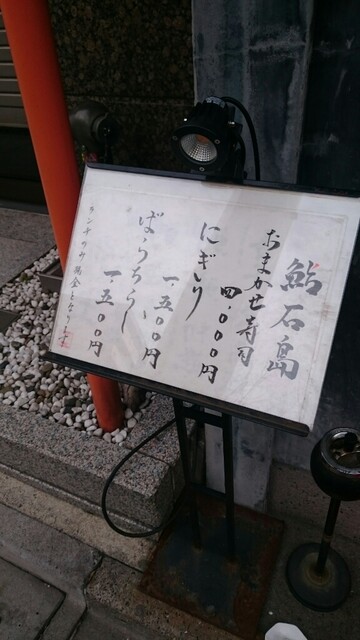 鮨石島
おまかせ寿司
四、〇〇〇円
にぎり
一、五〇〇円
ばらちらし
一、五〇〇円
ランチのみ現金となります